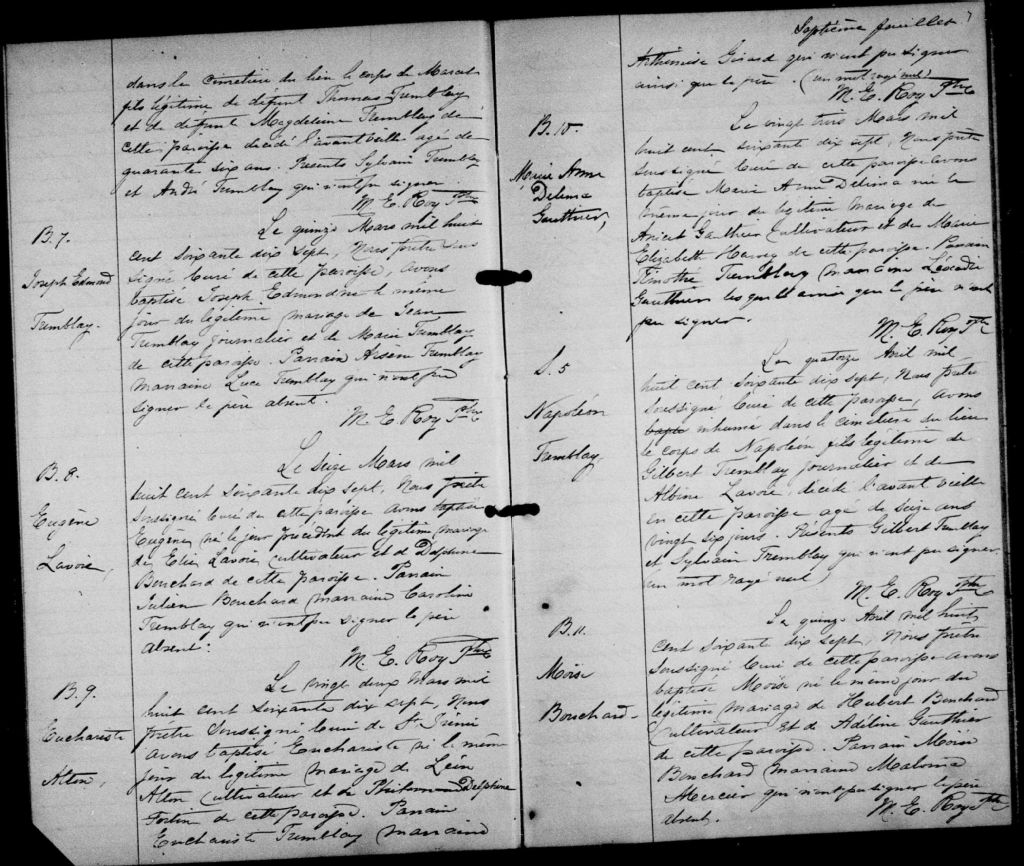 dans le cimetière du lieu le corps de Marcel
fils légitime de défunt Thomas Tremblay
et de défunt Magdeleine Tremblay de
cette paroisse décédé l'avant veille agé de
quarante six ans. Présents Sylvain Tremblay
et André Tremblay qui n'ont pu signer.
M. E. Roy Ptre
B. 7.
Joseph Edmond
Tremblay.
Le quinze Mars mil huit
cent soixante dix sept, Nous prêtre sous
signé Curé de cette paroisse, avons
baptisé Joseph Edmond né le même
jour du légitime mariage de Jean
Tremblay journalier et de Marie Tremblay
de cette paroisse. Parrain Arsène Tremblay
marraine Luce Tremblay qui n'ont pu
signer le père absent.
M. E. Roy Ptre
B. 8.
Eugène
Lavoie,
Le Seize Mars mil
huit cent soixante dix sept, Nous prêtre
soussigné Curé de cette paroisse avons baptisé
Eugène né le jour précédent du légitime mariage
de Elie Lavoie cultivateur et de Delphine
Bouchard de cette paroisse. Parrain
Julien Bouchard marraine Caroline
Tremblay qui n'ont pu signer le père
absent.
M. E. Roy Ptre
B. 9.
Euchariste
Alton,
Le vingt deux Mars mil
huit cent soixante dix sept, Nous
prêtre soussigné Curé de St
avons baptisé Euchariste né le même
jour du légitime mariage de
Alton cultivateur et de Delphine
Fortin de cette paroisse. Parrain
Euchariste Tremblay marraine
Septième feuillet 7
Arthémise Girard qui n'ont pu signer
ainsi que le père. (un mot rayé nul)
M. E. Roy Ptre
B. 10.
Marie Anne
Délima
Gauthier,
Le vingt trois Mars mil
huit cent soixante dix sept, Nous prêtre
soussigné Curé de cette paroisse avons
baptisé Marie Anne Délima née le
même jour du légitime mariage de
Anicet Gauthier Cultivateur et de Marie
Elizabeth Harvey de cette paroisse. Parrain
Timothé Tremblay marraine Léocadie
Gauthier lesquels ainsi que le père n'ont
pu signer.
M. E. Roy Ptre
S. 5
Napoléon
Tremblay,
Le quatorze Avril mil
huit cent soixante dix sept, Nous prêtre
soussigné Curé de cette paroisse, avons
bapti inhumé dans le cimetière du lieu
le corps de Napoléon, fils légitime de
Gilbert Tremblay journalier et de
Albine Lavoie, décédé l'avant veille
en cette paroisse agé de seize ans
vingt six jours. Présents Gilbert Tremblay
et Sylvain Tremblay qui n'ont pu signer.
un mot rayé nul)
M. E. Roy Ptre
B. 11.
Moïse
Bouchard
Le quinze Avril mil huit
cent soixante dix sept, Nous prêtre
soussigné Curé de cette paroisse avons
baptisé Moïse né le même jour du
légitime mariage de Hubert Bouchard
Cultivateur et de Adéline Gauthier
de cette paroisse. Parrain Moïse
Bouchard marraine
Mercier qui n'ont pu signer le père
absent.
M. E. Roy Ptre